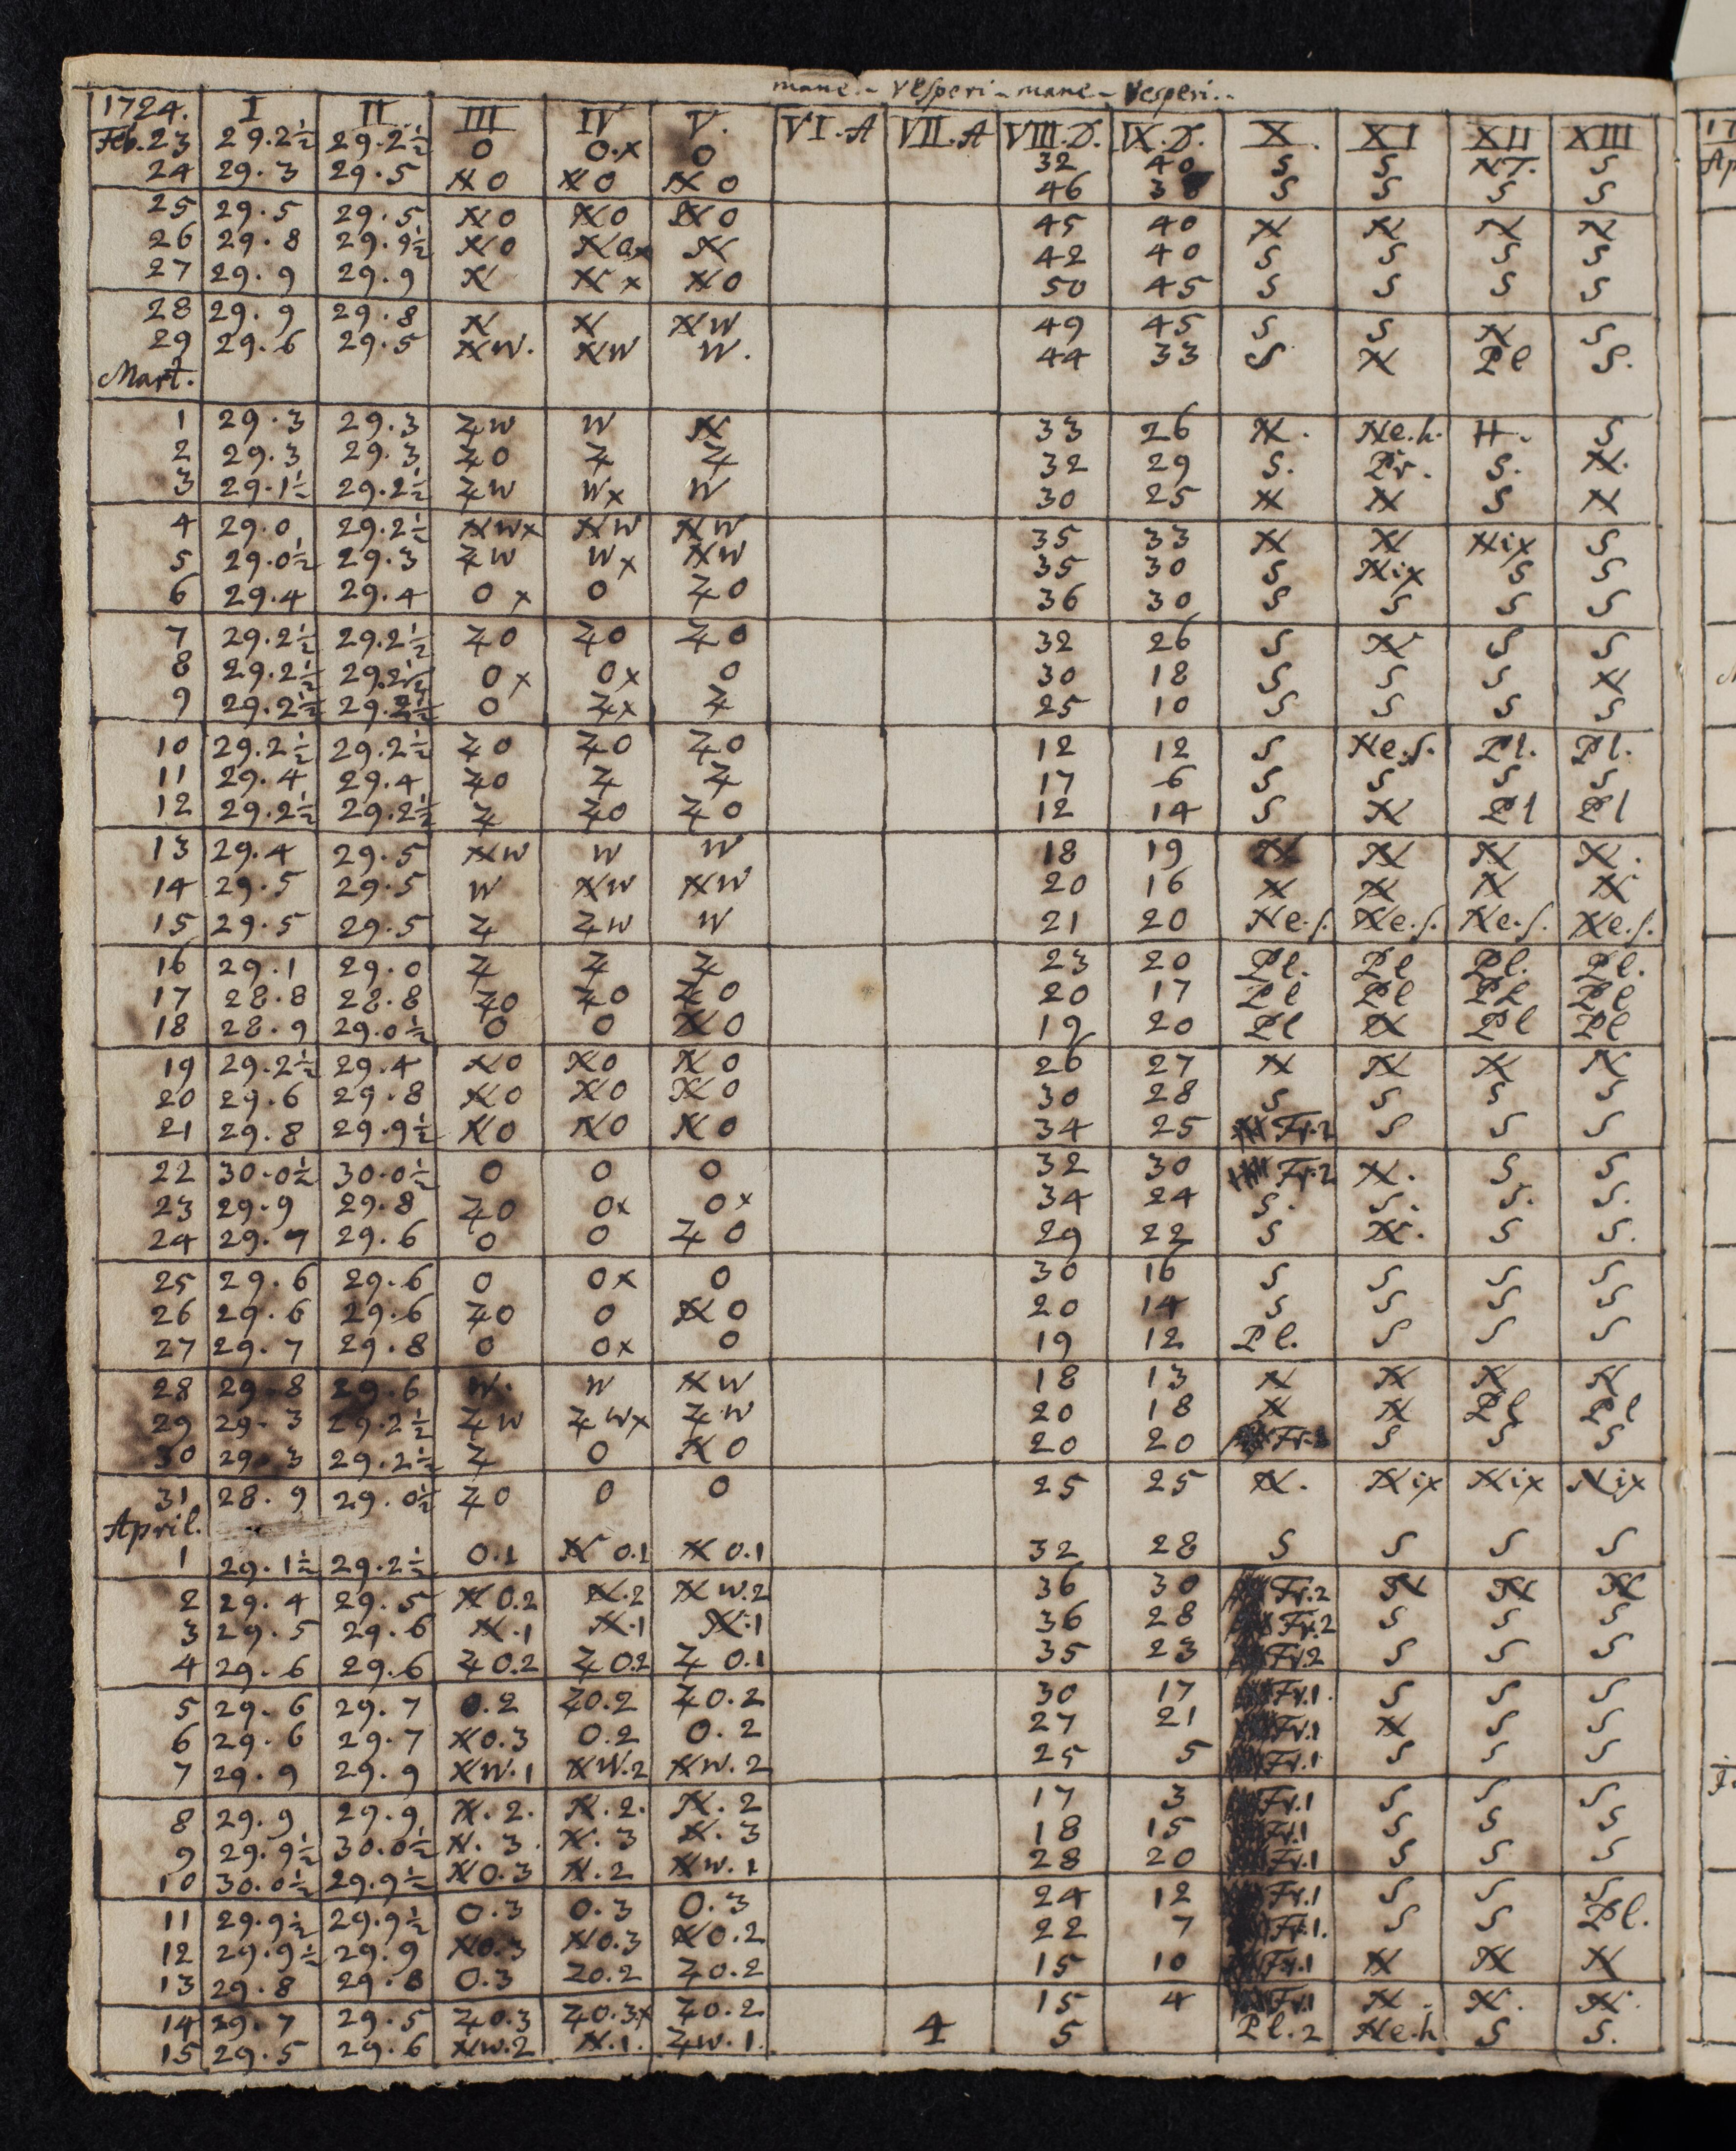 mane. - vesperi - mane - vesperi. -
1724. I II III IV V. VI.A VII.A VIII.D. IX.D. X XI XII XIII
Feb. 23 29.2½ 29.2½ O O.x O 32 40 S S NT. S
24 29.3 29.5 NO NO NO 46 S S S S
25 29.5 29.5 NO NO NO 45 40 N N N N
26 29.8 29.9½ NO NOx N 42 40 S S S S
27 29.9 29.9 N Nx NO 50 45 S S S S
28 29.9 29.8 N N NW 49 45 S S N S
29 29.6 29.5 NW. NW W. 44 33 S N Pl S.
Mart.
1 29.3 29.3 ZW W N 33 26 N. Ne.h. H. S
2 29.3 29.3 ZO Z Z 32 29 S. Pr. S. N.
3 29.1½ 29.2½ ZW Wx W 30 25 N N S N
4 29.0 29.2½ NWx NW NW 35 33 N N Nix S
5 29.0½ 29.3 ZW Wx NW 35 30 S Nix S S
6 29.4 29.4 Ox O ZO 36 30 S S S S
7 29.2½ 29.2½ ZO ZO ZO 32 26 S N S S
8 29.2½ 29.2½ Ox Ox O 30 18 S S S N
9 29.2½ 29.2½ O Zx Z 25 10 S S S S
10 29.2½ 29.2½ ZO ZO ZO 12 12 S Ne.s. Pl. Pl.
11 29.4 29.4 ZO Z Z 17 6 S S S S
12 29.2½ 29.2½ Z ZO ZO 12 14 S N Pl Pl
13 29.4 29.5 NW W W 18 19 N N N N.
14 29.5 29.5 W NW NW 20 16 N N N N
15 29.5 29.5 Z ZW W 21 20 Ne.s. Ne.s. Ne.s. Ne.s.
16 29.1 29.0 Z Z Z 23 20 Pl. Pl Pl. Pl.
17 28.8 28.8 ZO ZO ZO 20 17 Pl Pl Pl Pl
18 28.9 29.0½ O O NO 19 20 Pl N Pl Pl
19 29.2½ 29.4 NO NO NO 26 27 N N N N
20 29.6 29.8 NO NO NO 30 28 S S S S
21 29.8 29.9½ NO NO NO 34 25 Fr.2 S S S
22 30.0½ 30.0½ O O O 32 30 Fr.2 N. S S
23 29.9 29.8 ZO Ox Ox 34 24 S. S. S. S.
24 29.7 29.6 O O ZO 29 22 S N. S S.
25 29.6 29.6 O Ox O 30 16 S S S S
26 29.6 29.6 ZO O NO 20 14 S S S S
27 29.7 29.8 O Ox O 19 12 Pl. S S S
28 29.8 29.6 W. W NW 18 13 N N N N
29 29.3 29.2½ ZW ZWx ZW 20 18 N N Pl Pl
30 29.3 29.2½ Z O NO 20 20 S S S
31 28.9 29.0½ ZO O O 25 25 N. Nix Nix Nix
April.
1 29.1½ 29.2½ O.1 NO.1 NO.1 32 28 S S S S
2 29.4 29.5 NO.2 N.2 NW.2 36 30 Fr.2 N N N
3 29.5 29.6 N.1 N.1 N.1 36 28 Fr.2 S S S
4 29.6 29.6 ZO.2 ZO.2 ZO.1 35 23 Fr.2 S S S
5 29.6 29.7 O.2 ZO.2 ZO.2 30 17 Fr.1. S S S
6 29.6 29.7 NO.3 O.2 O.2 27 21 Fr.1 N S S
7 29.9 29.9 NW.1 NW.2 NW.2 25 5 Fr.1 S S S
8 29.9 29.9 N.2. N.2. N.2 17 3 Fr.1 S S S
9 29.9½ 30.0½ N.3. N.3 N.3 18 15 Fr.1 S S S
10 30.0½ 29.9½ NO.3 N.2 NW.1 28 20 Fr.1 S S S
11 29.9½ 29.9½ O.3 O.3 O.3 24 12 Fr.1 S S S
12 29.9½ 29.9 NO.3 NO.3 NO.2 22 7 Fr.1. S S Pl.
13 29.8 29.8 O.3 ZO.2 ZO.2 15 10 Fr.1 N N N
14 29.7 29.5 ZO.3 ZO.3x ZO.2 15 4 Fr.1 N. N. N.
15 29.5 29.6 NW.2 N.1. ZW.1. 4 5 Pl.2 Ne.h S S.